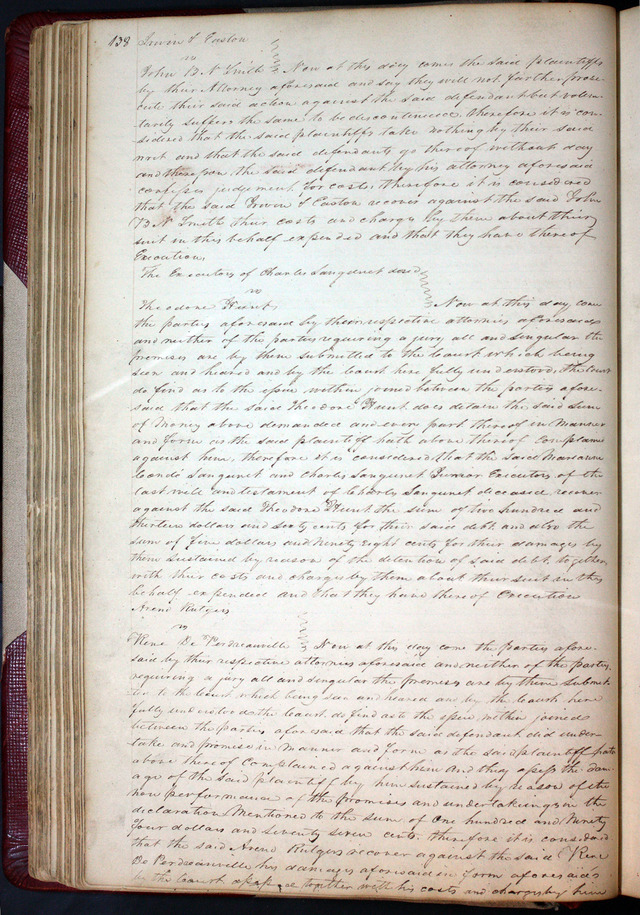 138 Irwin & Easton
vs
John B N Smith Now at this day comes the said plaintiffs
by their Attorney aforesaid and say they will not further prose-
cute their said action against the said defendant but volun-
tarily suffers the same to be discontinued. therefore it is con-
sidered that the said plaintiffs take nothing by their said
writ and that the said defendants go thereof without day
and thereupon the said defendant by his attorney aforesaid
confesses judgement for costs, therefore it is considered
that the said Irwin & Easton recover against the said John
B N Smith their costs and charges by them about their
suit in this behalf expended and that they have thereof
Execution.
The Executors of Charles Sanguinet decd
vs
Theodore Hunt Now at this day come
the parties aforesaid by their respective attornies aforesaid
and neither of the parties requiring a jury all and singular the
premises are by them submitted to the Court which being
seen and heared and by the Court here fully understood, the Court
do find as to the issue within joined between the parties afore-
said that the said Theodore Hunt does detain the said sum
of Money above demanded and every part thereof in Manner
and form as the said plaintiff hath above thereof Complained
against him, therefore it is considered that the said Marianne
Condé Sanguinet and Charles Sanguinet Junior Executors of the
last will and testament of Charles Sanguinet deceased recover
against the said Theodore Hunt the sum of two hundred and
thirteen dollars and sixty cents for their said debt and also the
sum of five dollars and Ninety eight cents for their damages by
them sustained by reason of the detention of said debt, together
with their costs and charges by them about their suit in this
behalf expended and that they have thereof Execution
Arend Rutgers
vs
Rene De Perdreauville Now at this day come the parties afore-
said by their respective attornies aforesaid and neither of the parties
requiring a jury all and singular the premises are by them submit-
ted to the Court which being seen and heared and by the Court here
fully understood the Court do find as to the issue within joined
between the parties aforesaid that the said defendant did under-
take and promise in Manner and form as the said plaintiff hath
above thereof Complained against him And they assess the dam-
age of the said plaintiff by him sustained by reason of the
non performance of the promises and undertakings in the
declaration Mentioned to the sum of One hundred and Ninety
four dollars and seventy seven cents. therefore it is considered
that the said Arend Rutgers recover against the said Rene
De Perdreauville his damages aforesaid in form aforesaid
by the Court assessed together with his costs and charges by him